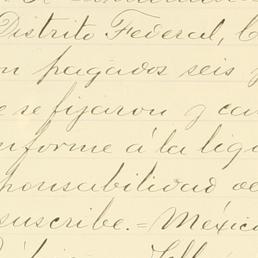 Distrito Federal, C
on pagados seis y
e se fijaron y can
nforme á la liqu
ponsabilidad de
suscribe.= México